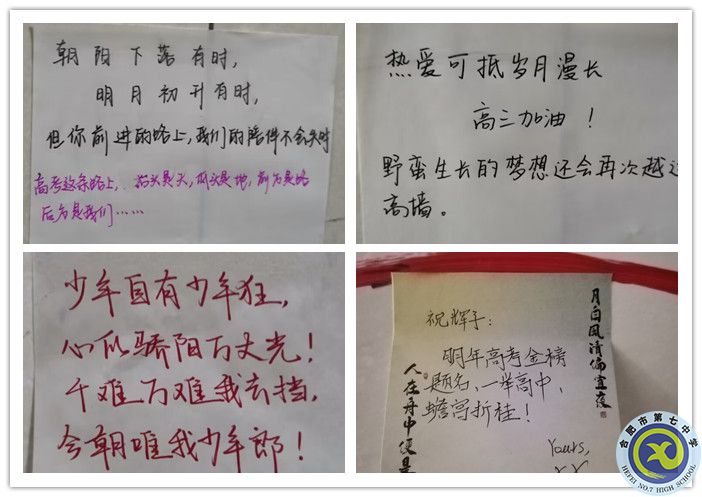 朝阳下落有时，
明月初升有时，
但你前进的路上，我们的陪伴不会失时
高考这条路上，抬头是天，低头是地，前方是路
后方是我们……
热爱可抵岁月漫长
高三加油！
野蛮生长的梦想还会再次越过
高墙。
少年自有少年狂，
心似骄阳万丈光！
千难万难我去挡，
今朝唯我少年郎！
祝辉子：
明年高考金榜
题名，一举高中，
蟾宫折桂！
Yours,
月白风清偏宜夜
人在舟中便是
合肥市第七中学
HEFEI NO.7 HIGH SCHOOL